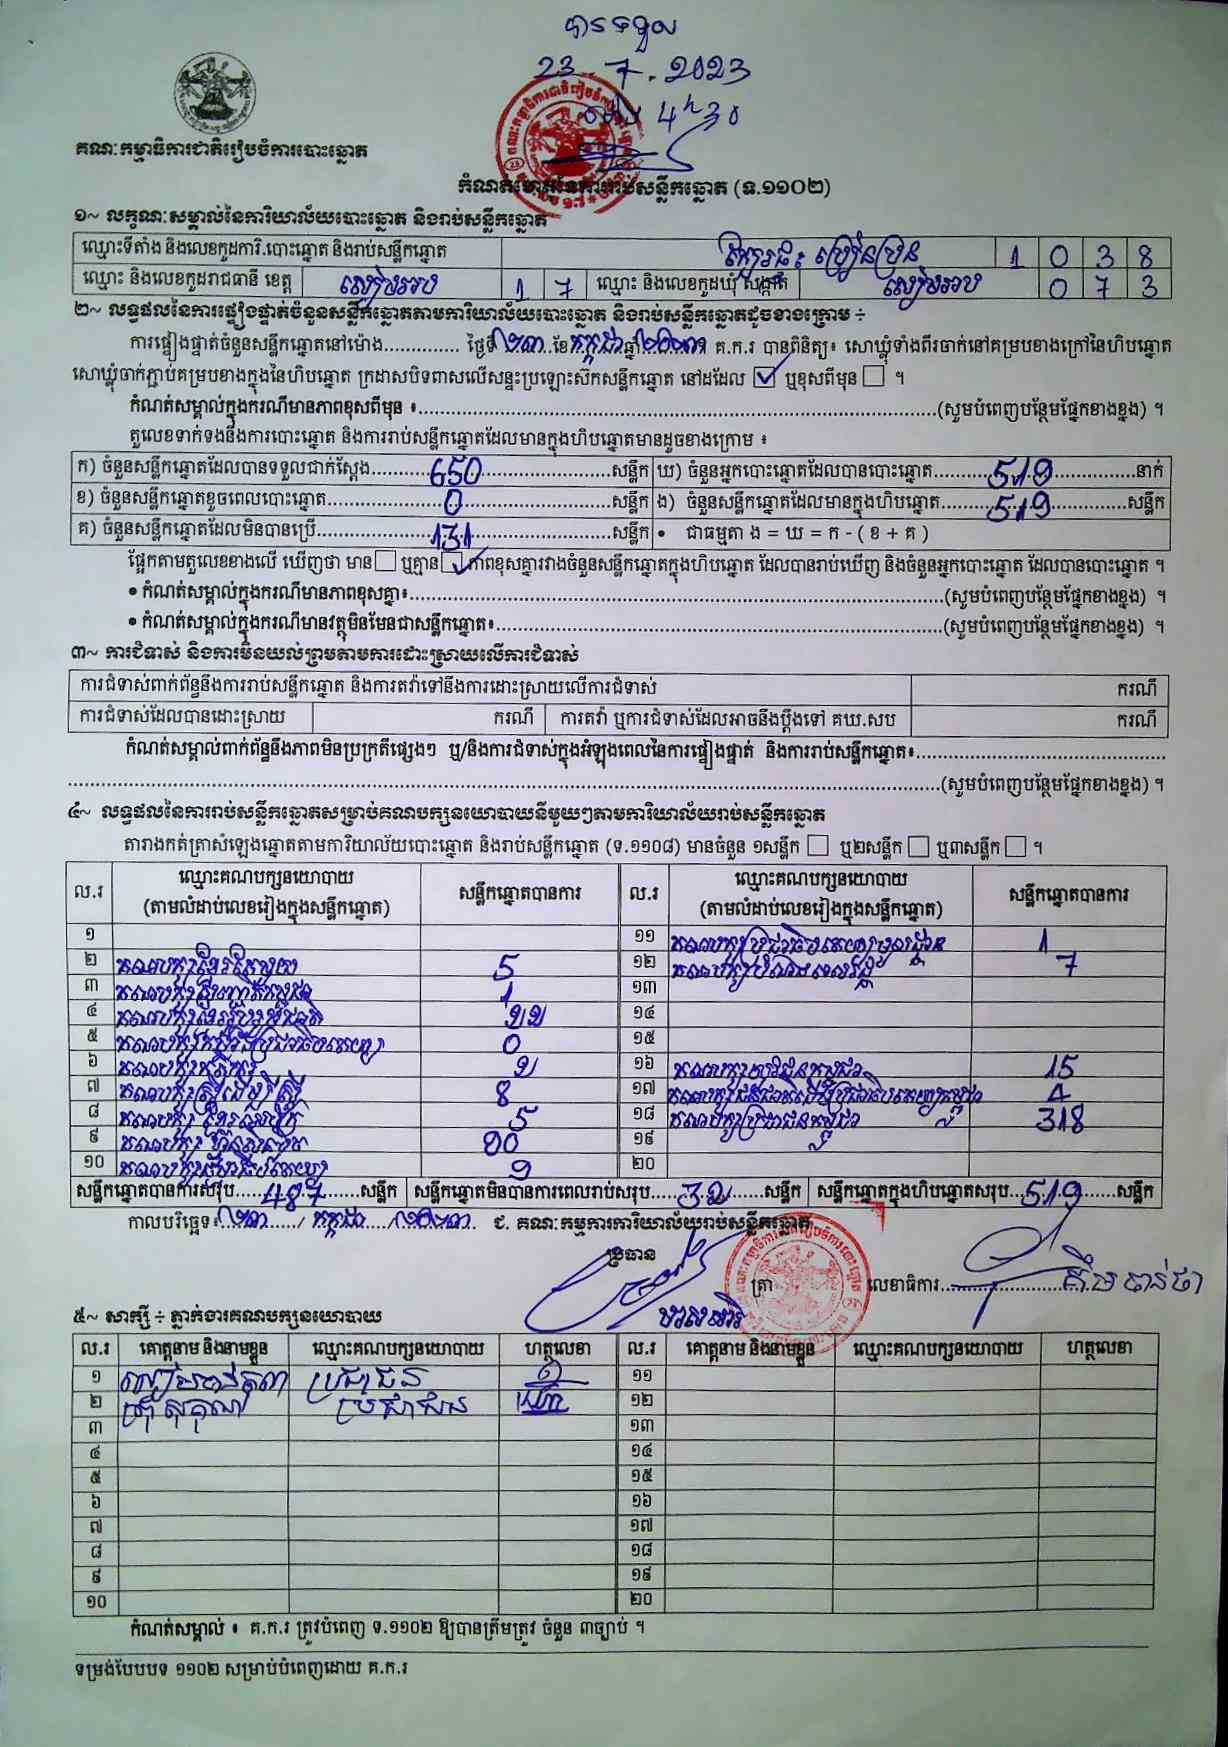 បានទទួល
23.7.2023
ម៉ោង 4h30
គណៈកម្មាធិការជាតិរៀបចំការបោះឆ្នោត
កំណត់ហេតុនៃការរាប់សន្លឹកឆ្នោត (ទ.១១០២)
១~ លក្ខណៈសម្គាល់នៃការិយាល័យបោះឆ្នោត និងរាប់សន្លឹកឆ្នោត
ឈ្មោះទីតាំង និងលេខកូដការិ.បោះឆ្នោត និងរាប់សន្លឹកឆ្នោត 1 0 3 8
ឈ្មោះ និងលេខកូដរាជធានី ខេត្ត សៀមរាប 1 7 ឈ្មោះ និងលេខកូដឃុំ សង្កាត់ សៀមរាប 0 7 3
២~ លទ្ធផលនៃការផ្ទៀងផ្ទាត់ចំនួនសន្លឹកឆ្នោតតាមការិយាល័យបោះឆ្នោត និងរាប់សន្លឹកឆ្នោតដូចខាងក្រោម ÷
ការផ្ទៀងផ្ទាត់ចំនួនសន្លឹកឆ្នោតនៅម៉ោង............. ថ្ងៃទី ២៣ ខែ កក្កដា ឆ្នាំ ២០២៣ គ.ក.រ បានពិនិត្យ៖ សោឃ្លុំទាំងពីរចាក់នៅគម្របខាងក្រៅនៃហិបឆ្នោត
សោឃ្លុំចាក់ភ្ជាប់គម្របខាងក្នុងនៃហិបឆ្នោត ក្រដាសបិទពាសលើសន្ទះប្រឡោះស៊កសន្លឹកឆ្នោត នៅដដែល ☑ ឬខុសពីមុន ☐ ។
កំណត់សម្គាល់ក្នុងករណីមានភាពខុសពីមុន ៖..........(សូមបំពេញបន្ថែមផ្នែកខាងខ្នង) ។
តួលេខទាក់ទងនឹងការបោះឆ្នោត និងការរាប់សន្លឹកឆ្នោតដែលមានក្នុងហិបឆ្នោតមានដូចខាងក្រោម ៖
ក) ចំនួនសន្លឹកឆ្នោតដែលបានទទួលជាក់ស្តែង.....650.....សន្លឹក ឃ) ចំនួនអ្នកបោះឆ្នោតដែលបានបោះឆ្នោត.....519.....នាក់
ខ) ចំនួនសន្លឹកឆ្នោតខូចពេលបោះឆ្នោត.....0.....សន្លឹក ង) ចំនួនសន្លឹកឆ្នោតដែលមានក្នុងហិបឆ្នោត.....519.....សន្លឹក
គ) ចំនួនសន្លឹកឆ្នោតដែលមិនបានប្រើ.....131.....សន្លឹក • ជាធម្មតា ង = ឃ = ក - ( ខ + គ )
ផ្អែកតាមតួលេខខាងលើ ឃើញថា មាន ☐ ឬគ្មាន ☑ ភាពខុសគ្នារវាងចំនួនសន្លឹកឆ្នោតក្នុងហិបឆ្នោត ដែលបានរាប់ឃើញ និងចំនួនអ្នកបោះឆ្នោត ដែលបានបោះឆ្នោត ។
• កំណត់សម្គាល់ក្នុងករណីមានភាពខុសគ្នា៖..........(សូមបំពេញបន្ថែមផ្នែកខាងខ្នង) ។
• កំណត់សម្គាល់ក្នុងករណីមានវត្ថុមិនមែនជាសន្លឹកឆ្នោត៖..........(សូមបំពេញបន្ថែមផ្នែកខាងខ្នង) ។
៣~ ការជំទាស់ និងការមិនយល់ព្រមតាមការដោះស្រាយលើការជំទាស់
ការជំទាស់ពាក់ព័ន្ធនឹងការរាប់សន្លឹកឆ្នោត និងការតវ៉ាទៅនឹងការដោះស្រាយលើការជំទាស់ ករណី
ការជំទាស់ដែលបានដោះស្រាយ ករណី ការតវ៉ា ឬការជំទាស់ដែលអាចនឹងប្តឹងទៅ គឃ.សប ករណី
កំណត់សម្គាល់ពាក់ព័ន្ធនឹងភាពមិនប្រក្រតីផ្សេងៗ ឬ/និងការជំទាស់ក្នុងអំឡុងពេលនៃការផ្ទៀងផ្ទាត់ និងការរាប់សន្លឹកឆ្នោត៖..........
..........(សូមបំពេញបន្ថែមផ្នែកខាងខ្នង) ។
៤~ លទ្ធផលនៃការរាប់សន្លឹកឆ្នោតសម្រាប់គណបក្សនយោបាយនីមួយៗតាមការិយាល័យរាប់សន្លឹកឆ្នោត
តារាងកត់ត្រាសំឡេងឆ្នោតតាមការិយាល័យបោះឆ្នោត និងរាប់សន្លឹកឆ្នោត (ទ.១១០៨) មានចំនួន ១សន្លឹក ☐ ឬ២សន្លឹក ☐ ឬ៣សន្លឹក ☐ ។
ល.រ ឈ្មោះគណបក្សនយោបាយ (តាមលំដាប់លេខរៀងក្នុងសន្លឹកឆ្នោត) សន្លឹកឆ្នោតបានការ ល.រ ឈ្មោះគណបក្សនយោបាយ (តាមលំដាប់លេខរៀងក្នុងសន្លឹកឆ្នោត) សន្លឹកឆ្នោតបានការ
១ ១១ គណបក្សប្រជាធិបតេយ្យមូលដ្ឋាន 1
២ គណបក្ស 5 ១២ គណបក្ស 7
៣ គណបក្ស 1 ១៣
៤ គណបក្សខ្មែររួបរួមជាតិ ២២ ១៤
៥ គណបក្ស 0 ១៥
៦ គណបក្សកសិករ ២ ១៦ គណបក្សយុវជនកម្ពុជា 15
៧ គណបក្សស្ត្រីដើម្បីស្ត្រី 8 ១៧ គណបក្ស 4
៨ គណបក្ស 5 ១៨ គណបក្សប្រជាជនកម្ពុជា 318
៩ គណបក្ស ១៩
១០ គណបក្ស ២០
សន្លឹកឆ្នោតបានការសរុប.....487.....សន្លឹក សន្លឹកឆ្នោតមិនបានការពេលរាប់សរុប.....3២.....សន្លឹក សន្លឹកឆ្នោតក្នុងហិបឆ្នោតសរុប.....519.....សន្លឹក
កាលបរិច្ឆេទ៖ ២៣ / កក្កដា / ២០២៣ ជ. គណៈកម្មការការិយាល័យរាប់សន្លឹកឆ្នោត
ប្រធាន
ត្រា លេខាធិការ..........
៥~ សាក្សី ÷ ភ្នាក់ងារគណបក្សនយោបាយ
ល.រ គោត្តនាម និងនាមខ្លួន ឈ្មោះគណបក្សនយោបាយ ហត្ថលេខា ល.រ គោត្តនាម និងនាមខ្លួន ឈ្មោះគណបក្សនយោបាយ ហត្ថលេខា
១ ប្រជាជន ១១
២ ប្រជាជន ១២
៣ ១៣
៤ ១៤
៥ ១៥
៦ ១៦
៧ ១៧
៨ ១៨
៩ ១៩
១០ ២០
កំណត់សម្គាល់ ៖ គ.ក.រ ត្រូវបំពេញ ទ.១១០២ ឱ្យបានត្រឹមត្រូវ ចំនួន ៣ច្បាប់ ។
ទម្រង់បែបបទ ១១០២ សម្រាប់បំពេញដោយ គ.ក.រ